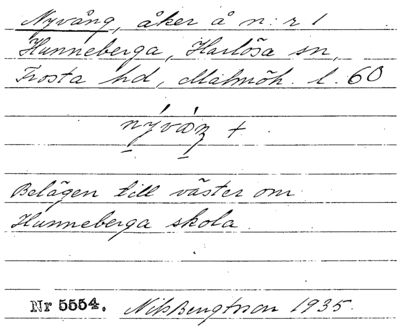 Nyvång, åker å n:r 1
Hunneberga, Harlösa sn,
Frosta hd, Malmöh. l. 60
nývàŋ +
Belägen till väster om
Hunneberga skola.
Nr 5554. Nils Bengtsson 1935.